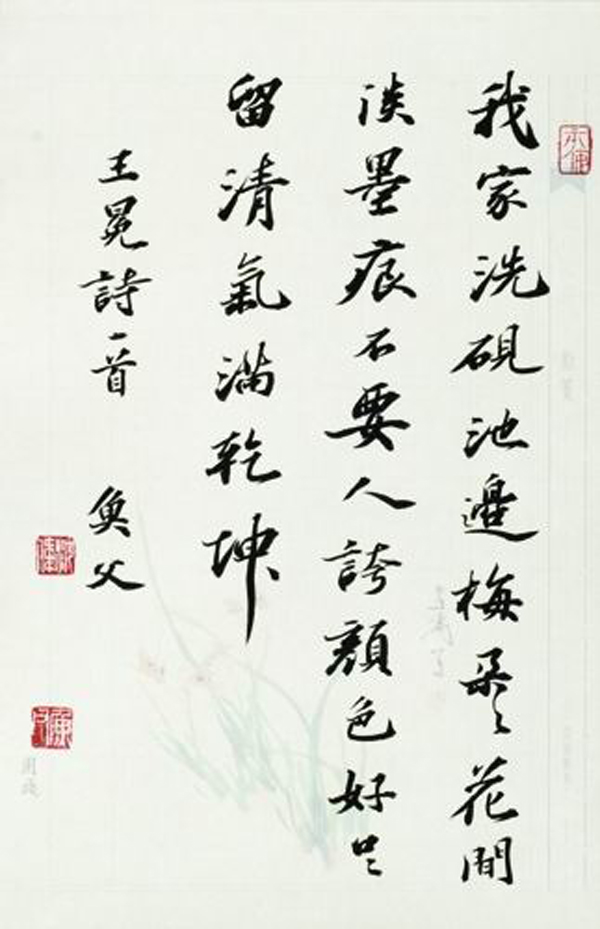 我家洗硯池邊梅朵〻花間
淡墨痕不要人誇顏色好只
留清氣滿乾坤
王冕詩一首 奐父